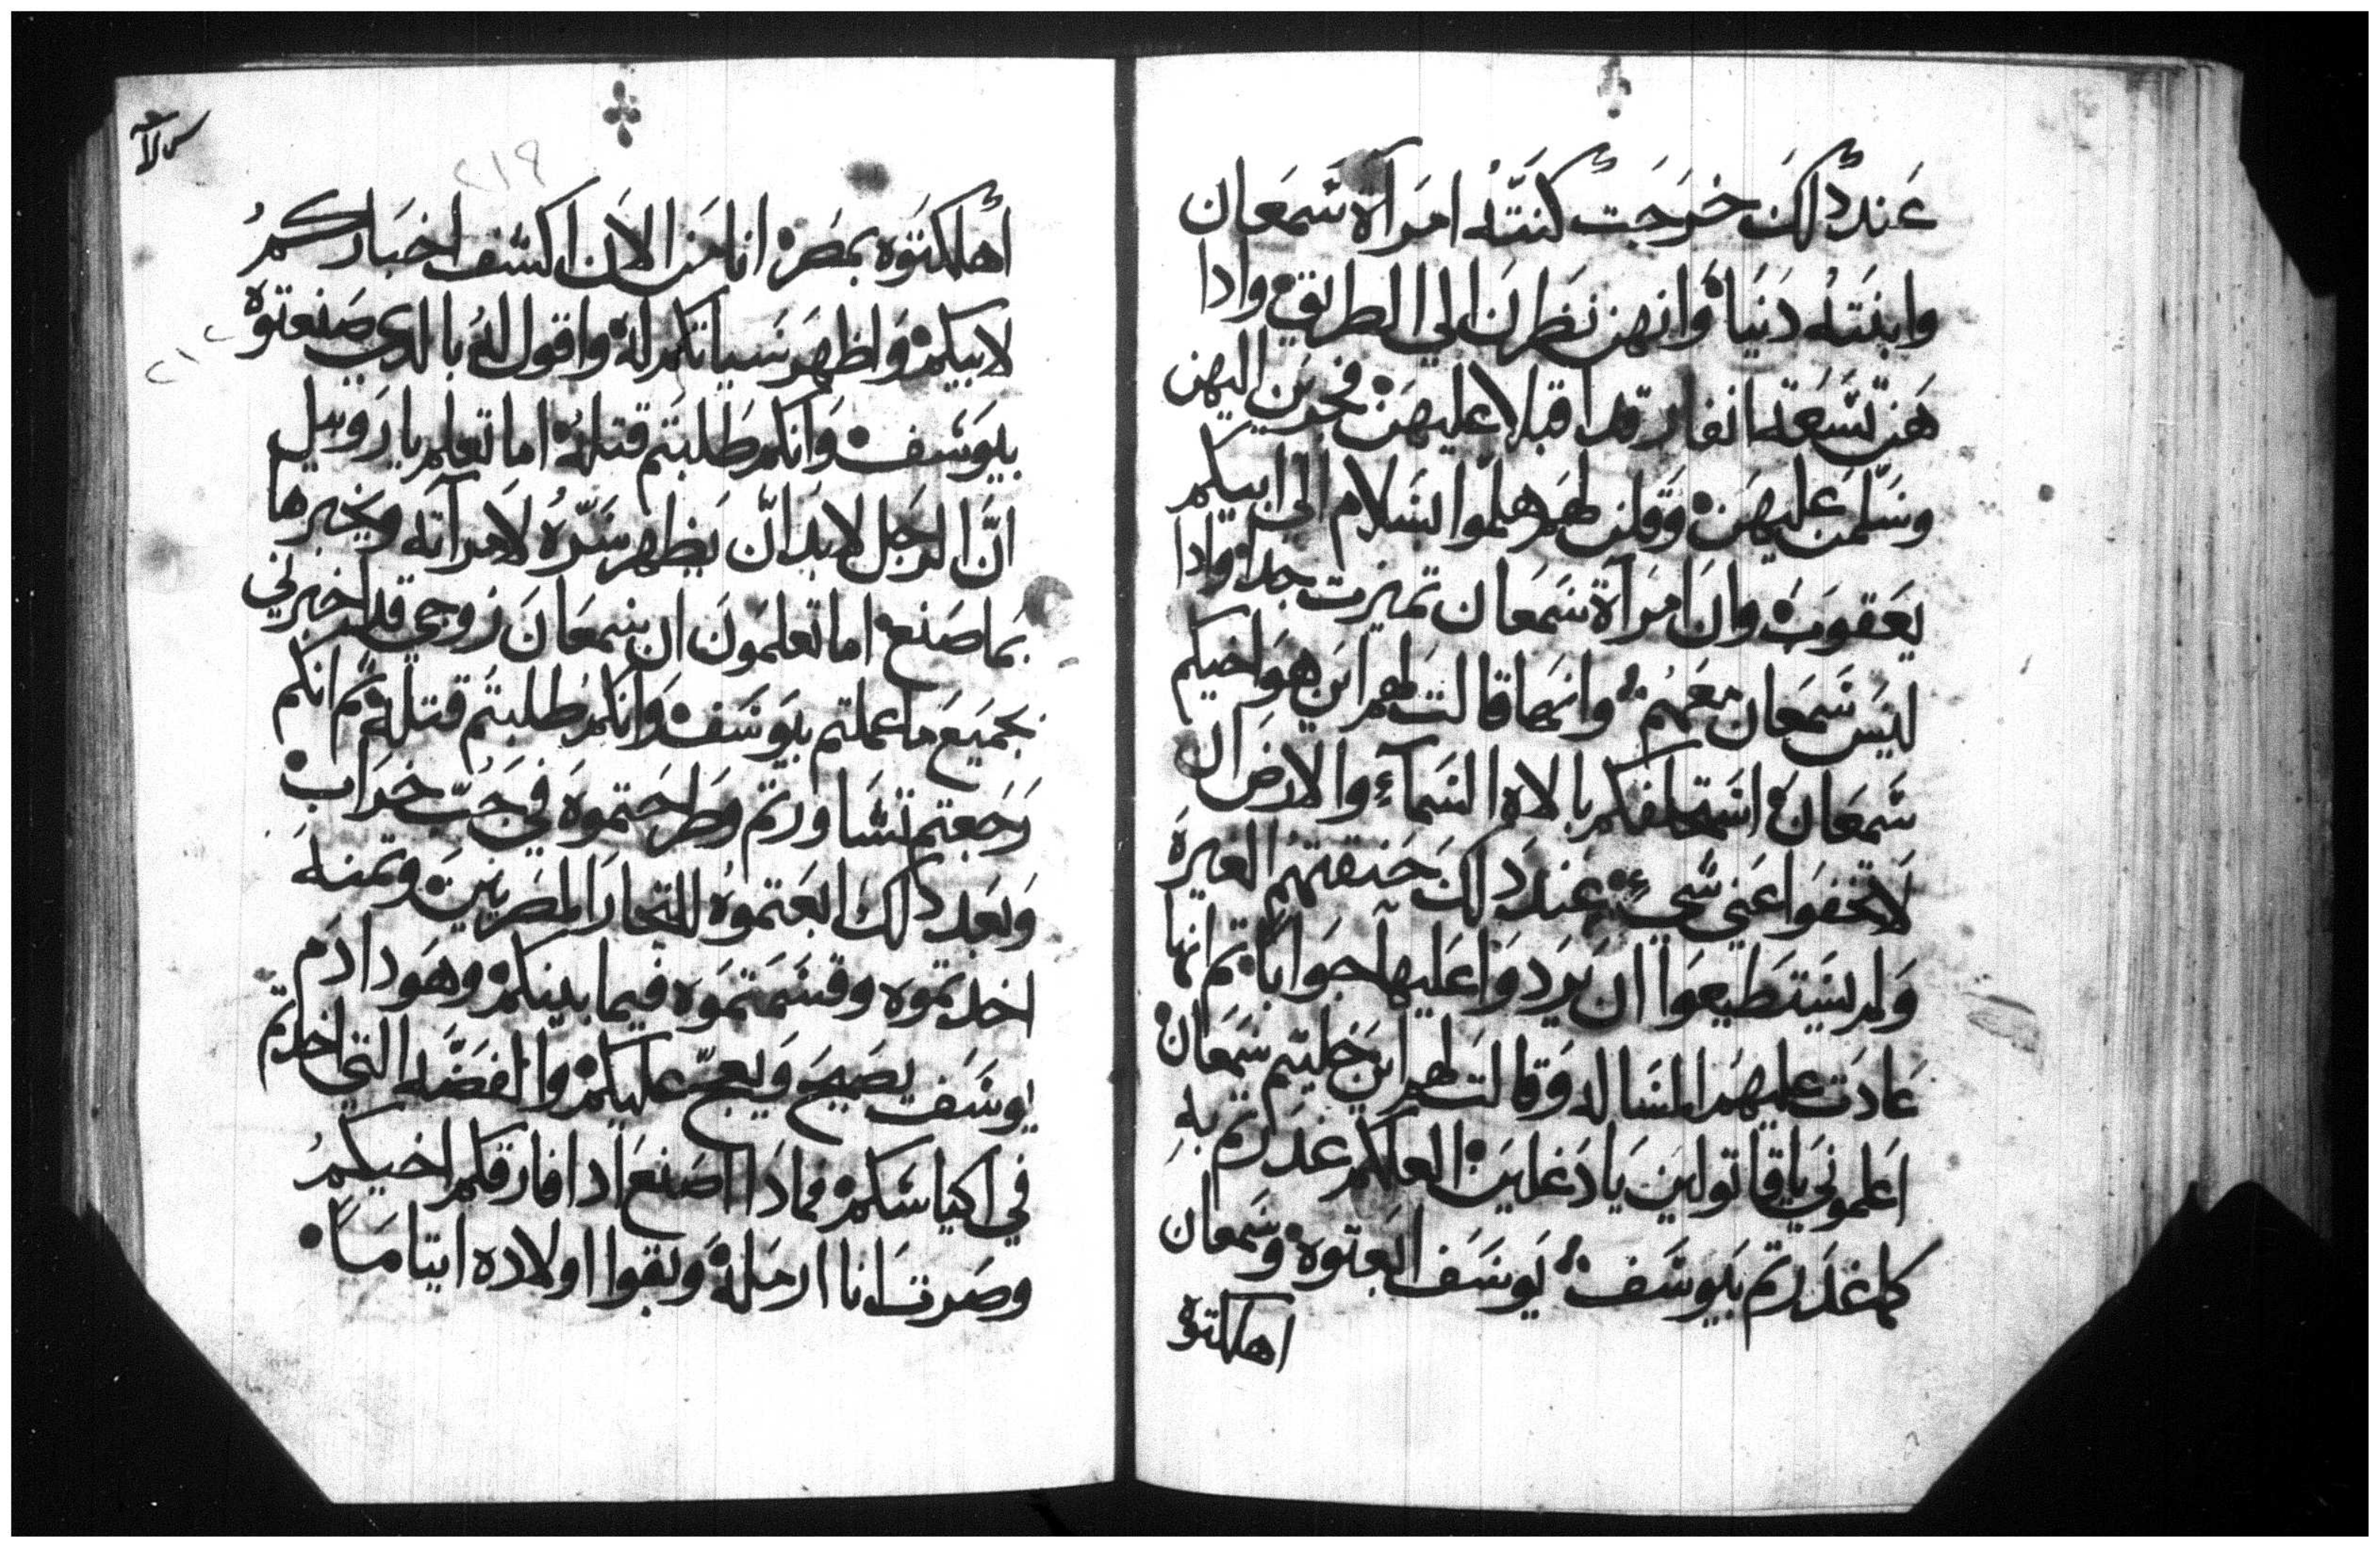 عَند دلكَ خرَجَت كنتهُ امرَآة شَمعَان
وابنَتهُ دَنيَا وَانهن نظرنَ الي الطريق وادا
هَن تسَعَة انفار قد اقبلا عليهَن فخرَجن اليهن
وسَلّمنَ عليهَن وَقلن لهم هلموا السَلام الي ابيكم
يعَقوبَ وانَ امرَآة شَمَعان تميزت جدا وادا
ليَس شَمعان معَهُم وانهَا قالت لهم اين هوَ اخيكم
شَمعَان استحلفكم بالاه السَمآء والارض ان
لاتخفوا عَني شي عَند دلكَ خنقتهم العبرَة
وَلم يستطيعوا ان يَردوا عَليها جوَاباً تم انها
عَادَت عليهَم المسَاله وَقالت لهم اين خليتم شمعَان
اعَلموني يا قاتولين يا دَغلين لعلكم غدرتم به
كما غدَرتم بيَوسَف يَوسَف ابعَتوه وشمعان
اهلكتوه
اهلكتوه بمصَر انا من الان اكشف اخبَاركمُ
لابيكم وَاظهرَ سَياتكم لهُ واقول لهُ بالدي صَنعتوه
بيوَسف وَانكم طَلبتم قتلهُ اما تعلم يا رَوبيل
انَّ الرجَل لابد انَّ يَظهر سَرّهُ لامرآته ويخبرها
بمَا صَنع اما تعَلموَن ان شمعَانَ زوجي قد اخبرني
بجَميَع ما عملتم بيوَسَف وَانكم طلبتم قتلهُ تم انكم
رَجَعتم تشَاورتم وَطرَحتموَه في جُبّ خرَاب
وَبعَد دلك ابعَتموهُ للتجار المصَريين وتمنهَ
اخدتموه وقسَمتموَه فيما بينكم وهوَدا دَم
يوسَف يصَيح وَيعج عليكم والفضَّه التي اخدتم
في اكياسَكم فمادَا اصنعَ ادا فارقكم اخيكمُ
وصَرت انا ارمَلة وَبقوا اولاده ايتامَاً